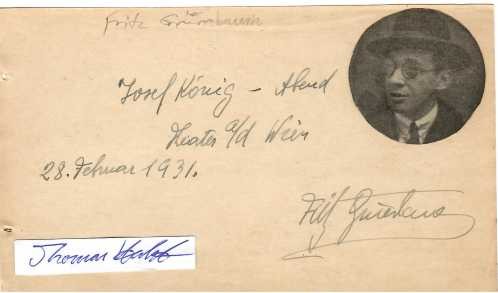 Fritz Grünbaum
Josef König - Abend
Theater a/d Wien
28. Februar 1931.
Fritz Grünbaum
Thomas